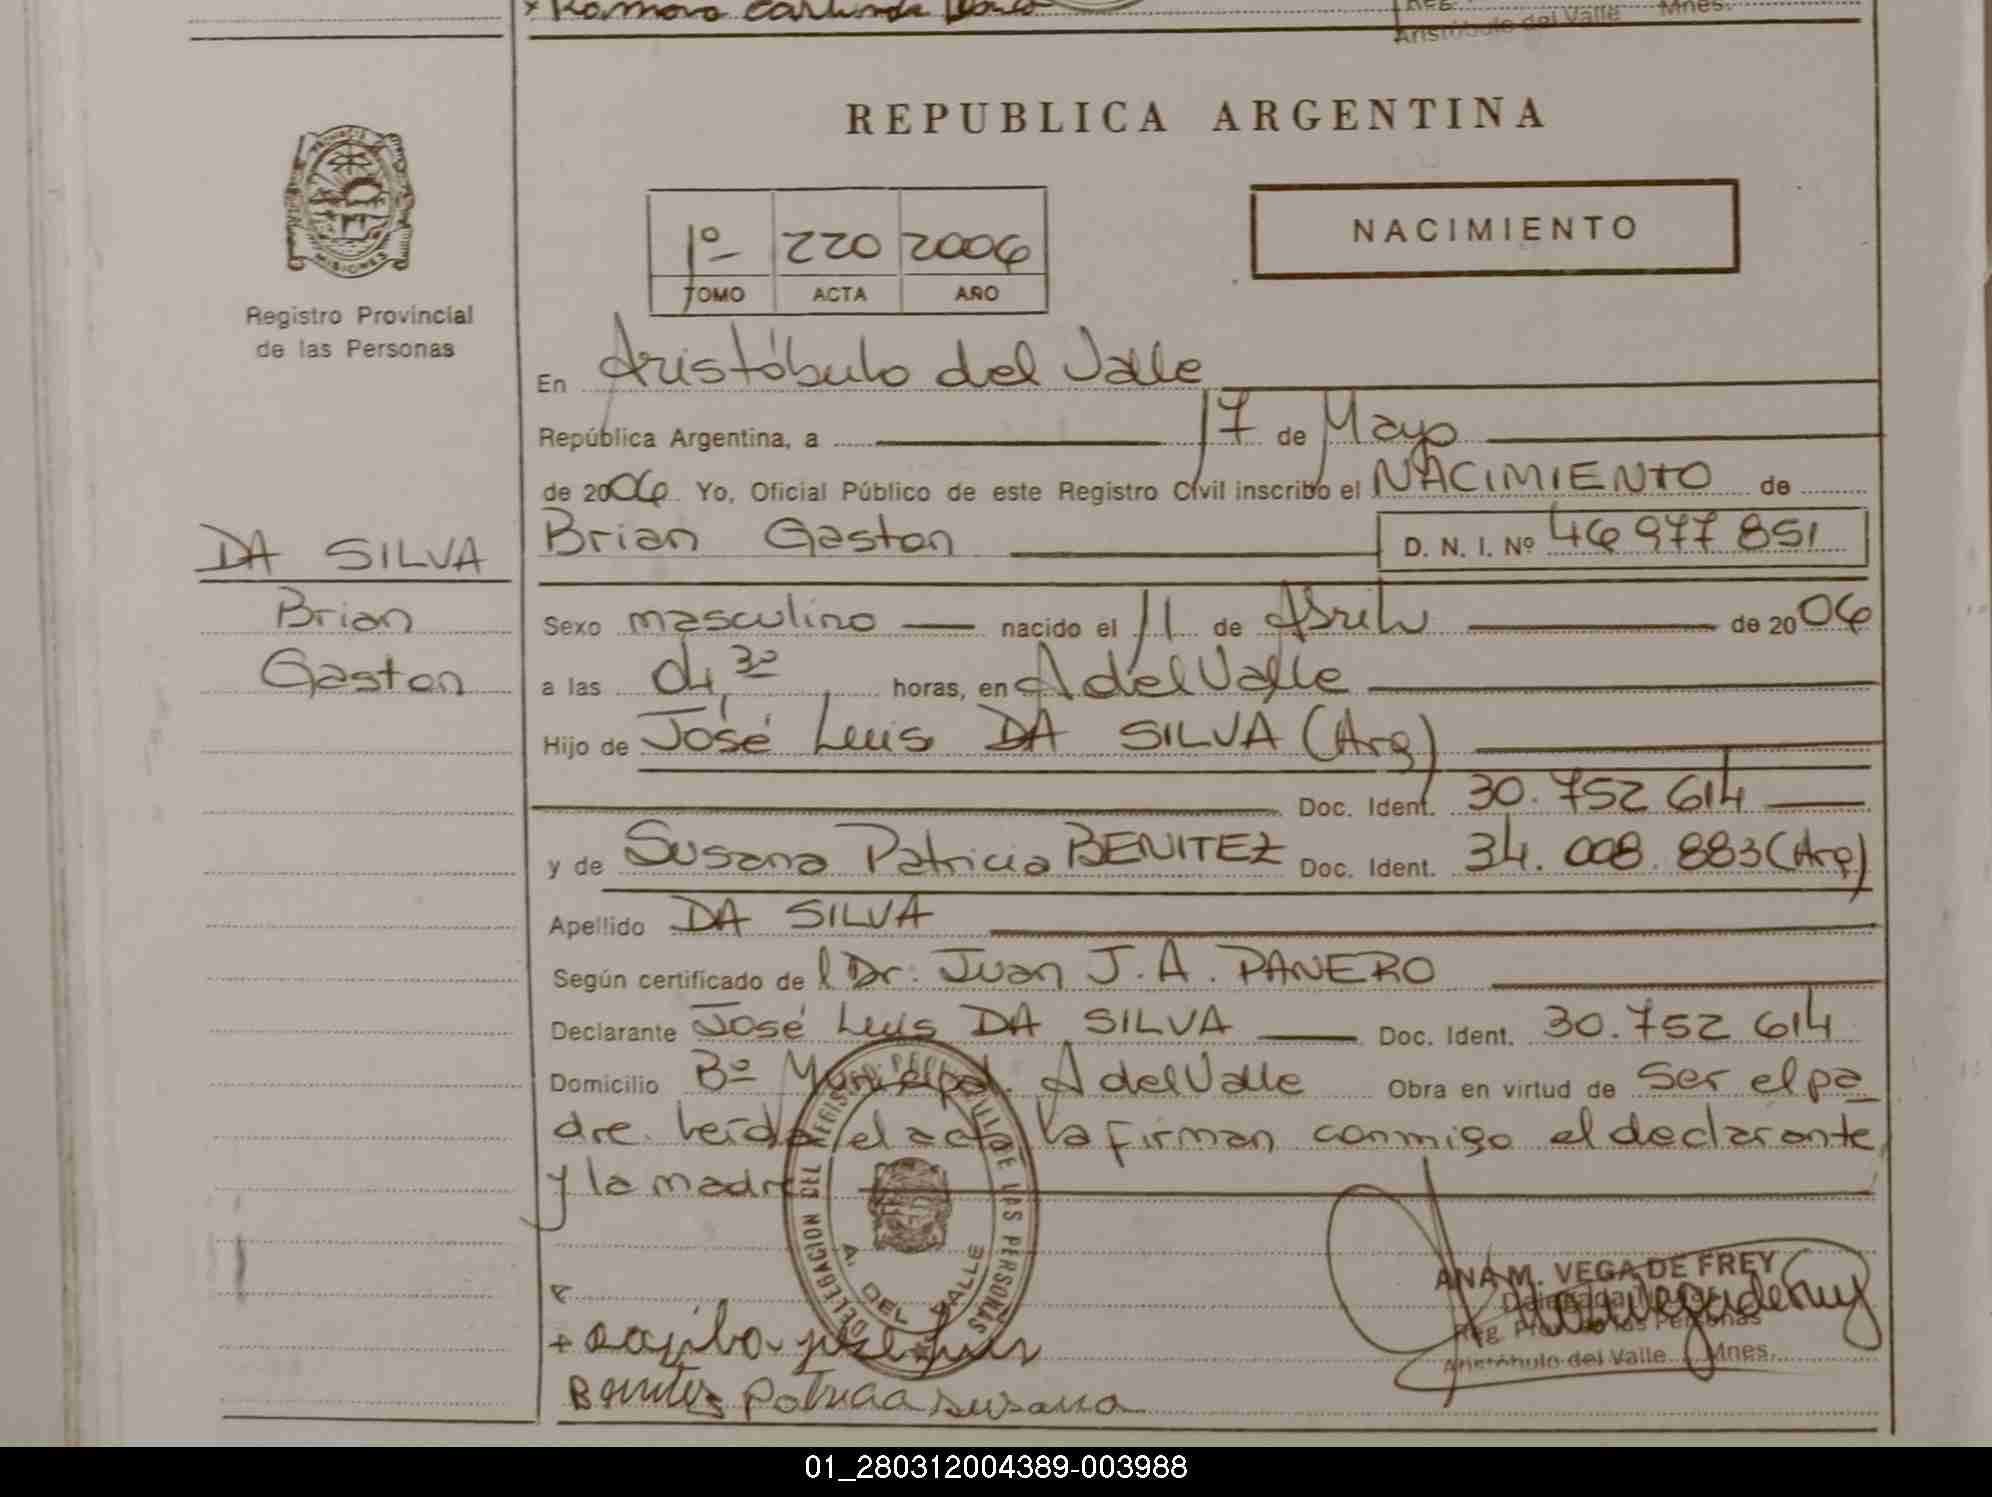 Aristóbulo del Valle Mnes.
REPUBLICA ARGENTINA
PROVINCIA
MISIONES
Registro Provincial
de las Personas
1º 220 2006
TOMO ACTA AÑO
NACIMIENTO
En Aristóbulo del Valle
República Argentina, a 17 de Mayo
de 2006 Yo, Oficial Público de este Registro Civil inscribo el NACIMIENTO de
Brian Gaston D. N. I. Nº 46 977 851
DA SILVA
Brian
Gaston
Sexo masculino nacido el 11 de Abril de 2006
a las 04,30 horas, en A del Valle
Hijo de José Luis DA SILVA (Arg)
Doc. Ident. 30.752 614
y de Susana Patricia BENITEZ Doc. Ident. 34.008.883 (Arg)
Apellido DA SILVA
Según certificado de l Dr. Juan J. A. PANERO
Declarante José Luis DA SILVA Doc. Ident. 30.752 614
Domicilio Bº Municipal. A del Valle Obra en virtud de ser el pa
dre. Leída el acta la firman conmigo el declarante
y la madre
DELEGACION DEL REGISTRO PROVINCIAL DE LAS PERSONAS
A. DEL VALLE
ANA M. VEGA DE FREY
Reg. Prov. de las Personas
Aristóbulo del Valle Mnes.
Benitez Patricia Susana
01_280312004389-003988